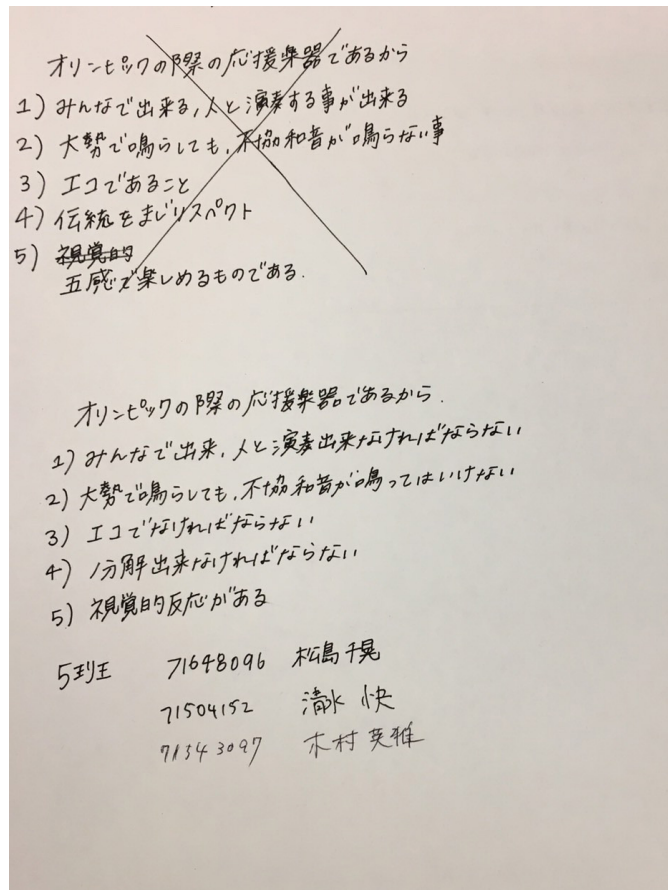 オリンピックの際の応援楽器であるから
1) みんなで出来る,人と演奏する事が出来る
2) 大勢で鳴らしても,不協和音が鳴らない事
3) エコであること
4) 伝統をまじリスペクト
5) 視覚的
五感で楽しめるものである.
オリンピックの際の応援楽器であるから.
1) みんなで出来,人と演奏出来なければならない
2) 大勢で鳴らしても,不協和音が鳴ってはいけない
3) エコでなければならない
4) 分解出来なければならない
5) 視覚的反応がある
5班 71648096 松島千晃
71504152 清水 快
71343097 木村英雅